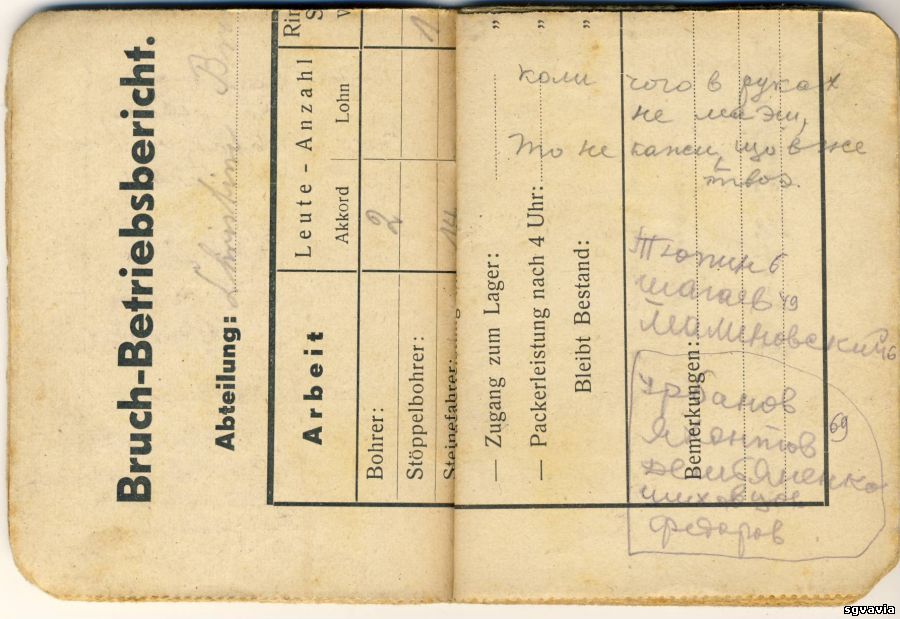 Bruch-Betriebsbericht.
Abteilung: Christine
Arbeit
Leute - Anzahl
Akkord
Lohn
Rin
S
W
Bohrer: 2
1
Stöppelbohrer:
Steinefahrer: 14
— Zugang zum Lager: „
— Packerleistung nach 4 Uhr: „
Bleibt Bestand: „
Bemerkungen:
коли чого в руках
не маэш,
То не кажи, що вже
твоэ.
Тюпин 6
Шагаев 49
Малиновский 46
Урбанов
Яхонтов
Демьяненко
Шиховцов
Федоров
69
sgvavia